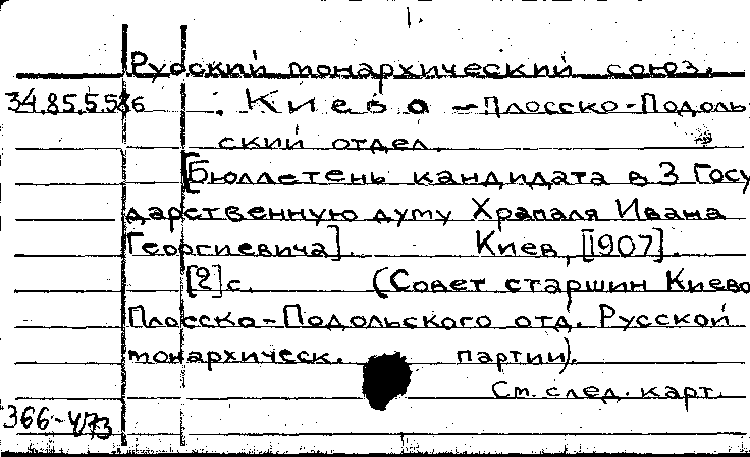 1.
Русский монархический союз.
34.85.5586 . Киево-Плосско-Подоль
ский отдел.
[Бюллетень кандидата в 3 Госу
дарственную думу Храпаля Ивана
Георгиевича]. Киев, [1907].
[2]с. (Совет старшин Киево
Плосско-Подольского отд. Русской
монархическ. партии).
См. след. карт.
366-473